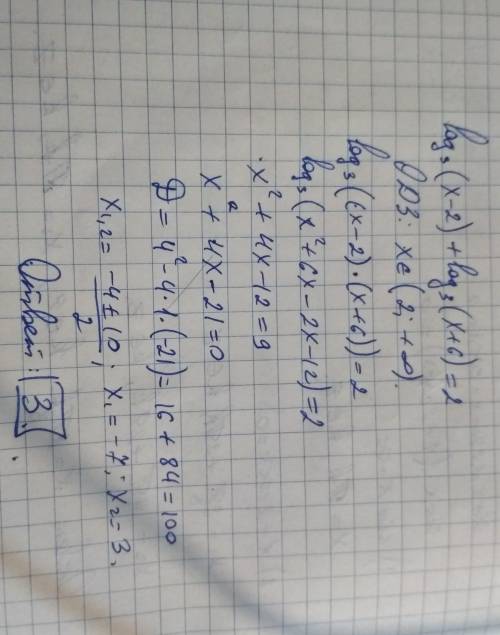 log₃(x-2)+log₃(x+6)=2
ОДЗ: x∈(2; +∞).
log₃((x-2)·(x+6))=2
log₃(x²+6x-2x-12)=2
x²+4x-12=9
x²+4x-21=0
D=4²-4·1·(-21)=16+84=100
x₁,₂=(-4±10)/2; x₁=-7; x₂=3.
Ответ: 3.